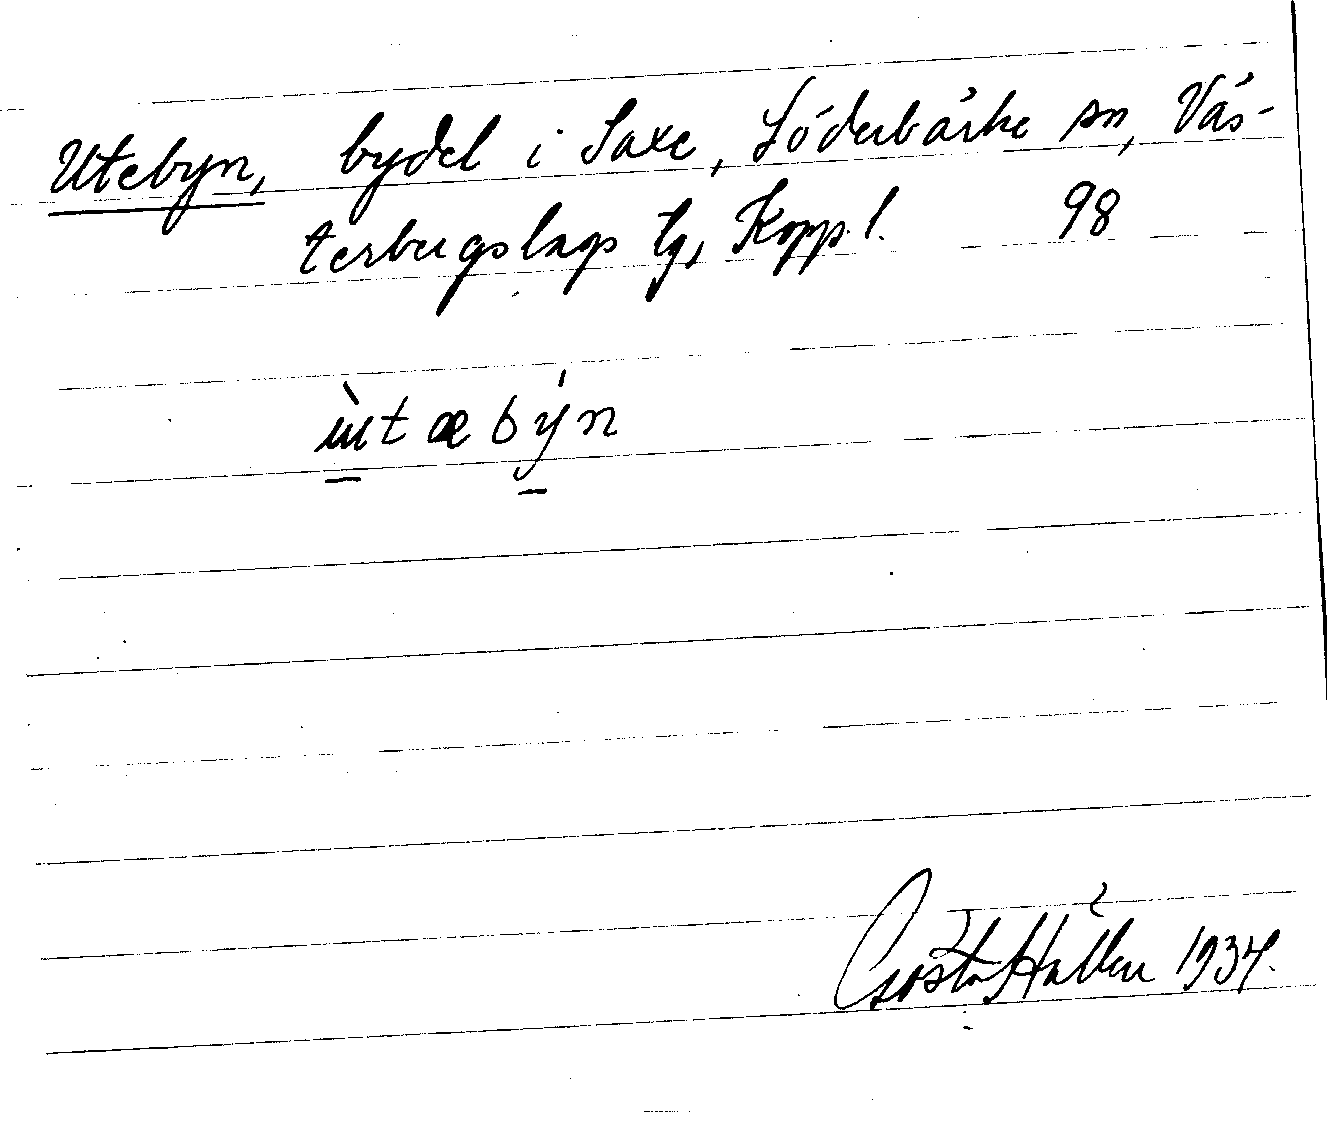 Utebyn, bydel i Saxe, Söderbärke sn, Väs-
terbergslags tg, Kopp. l. 98
ùtæbýn
Gösta Hallén 1934.